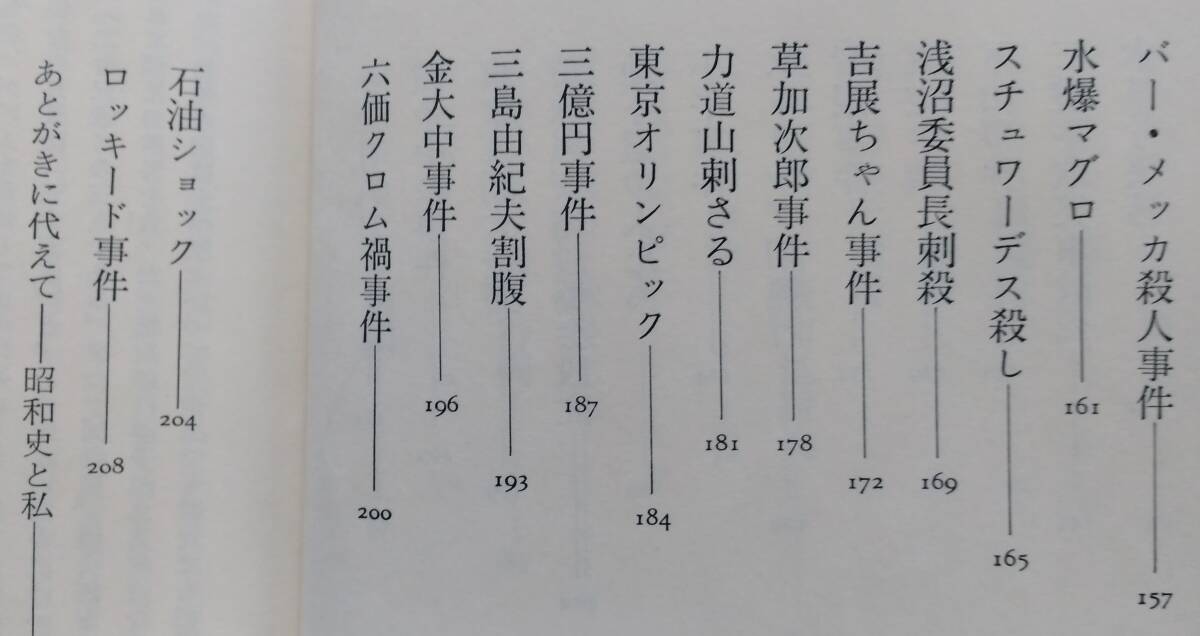 バー・メッカ殺人事件――157
水爆マグロ――161
スチュワーデス殺し――165
浅沼委員長刺殺――169
吉展ちゃん事件――172
草加次郎事件――178
力道山刺さる――181
東京オリンピック――184
三億円事件――187
三島由紀夫割腹――193
金大中事件――196
六価クロム禍事件――200
石油ショック――204
ロッキード事件――208
あとがきに代えて――昭和史と私――